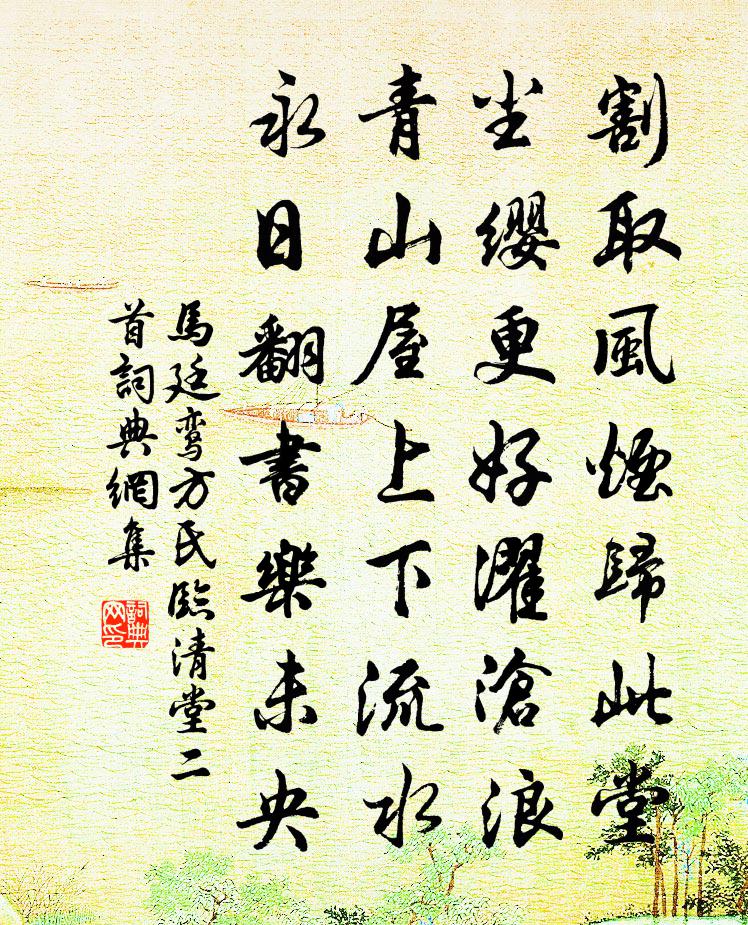 割取風煙歸此堂
尘缨更好濯滄浪
青山屋上下流水
永日翻書樂未央
馬廷鸾方氏臨清堂二
首詞典網集
詞典网印